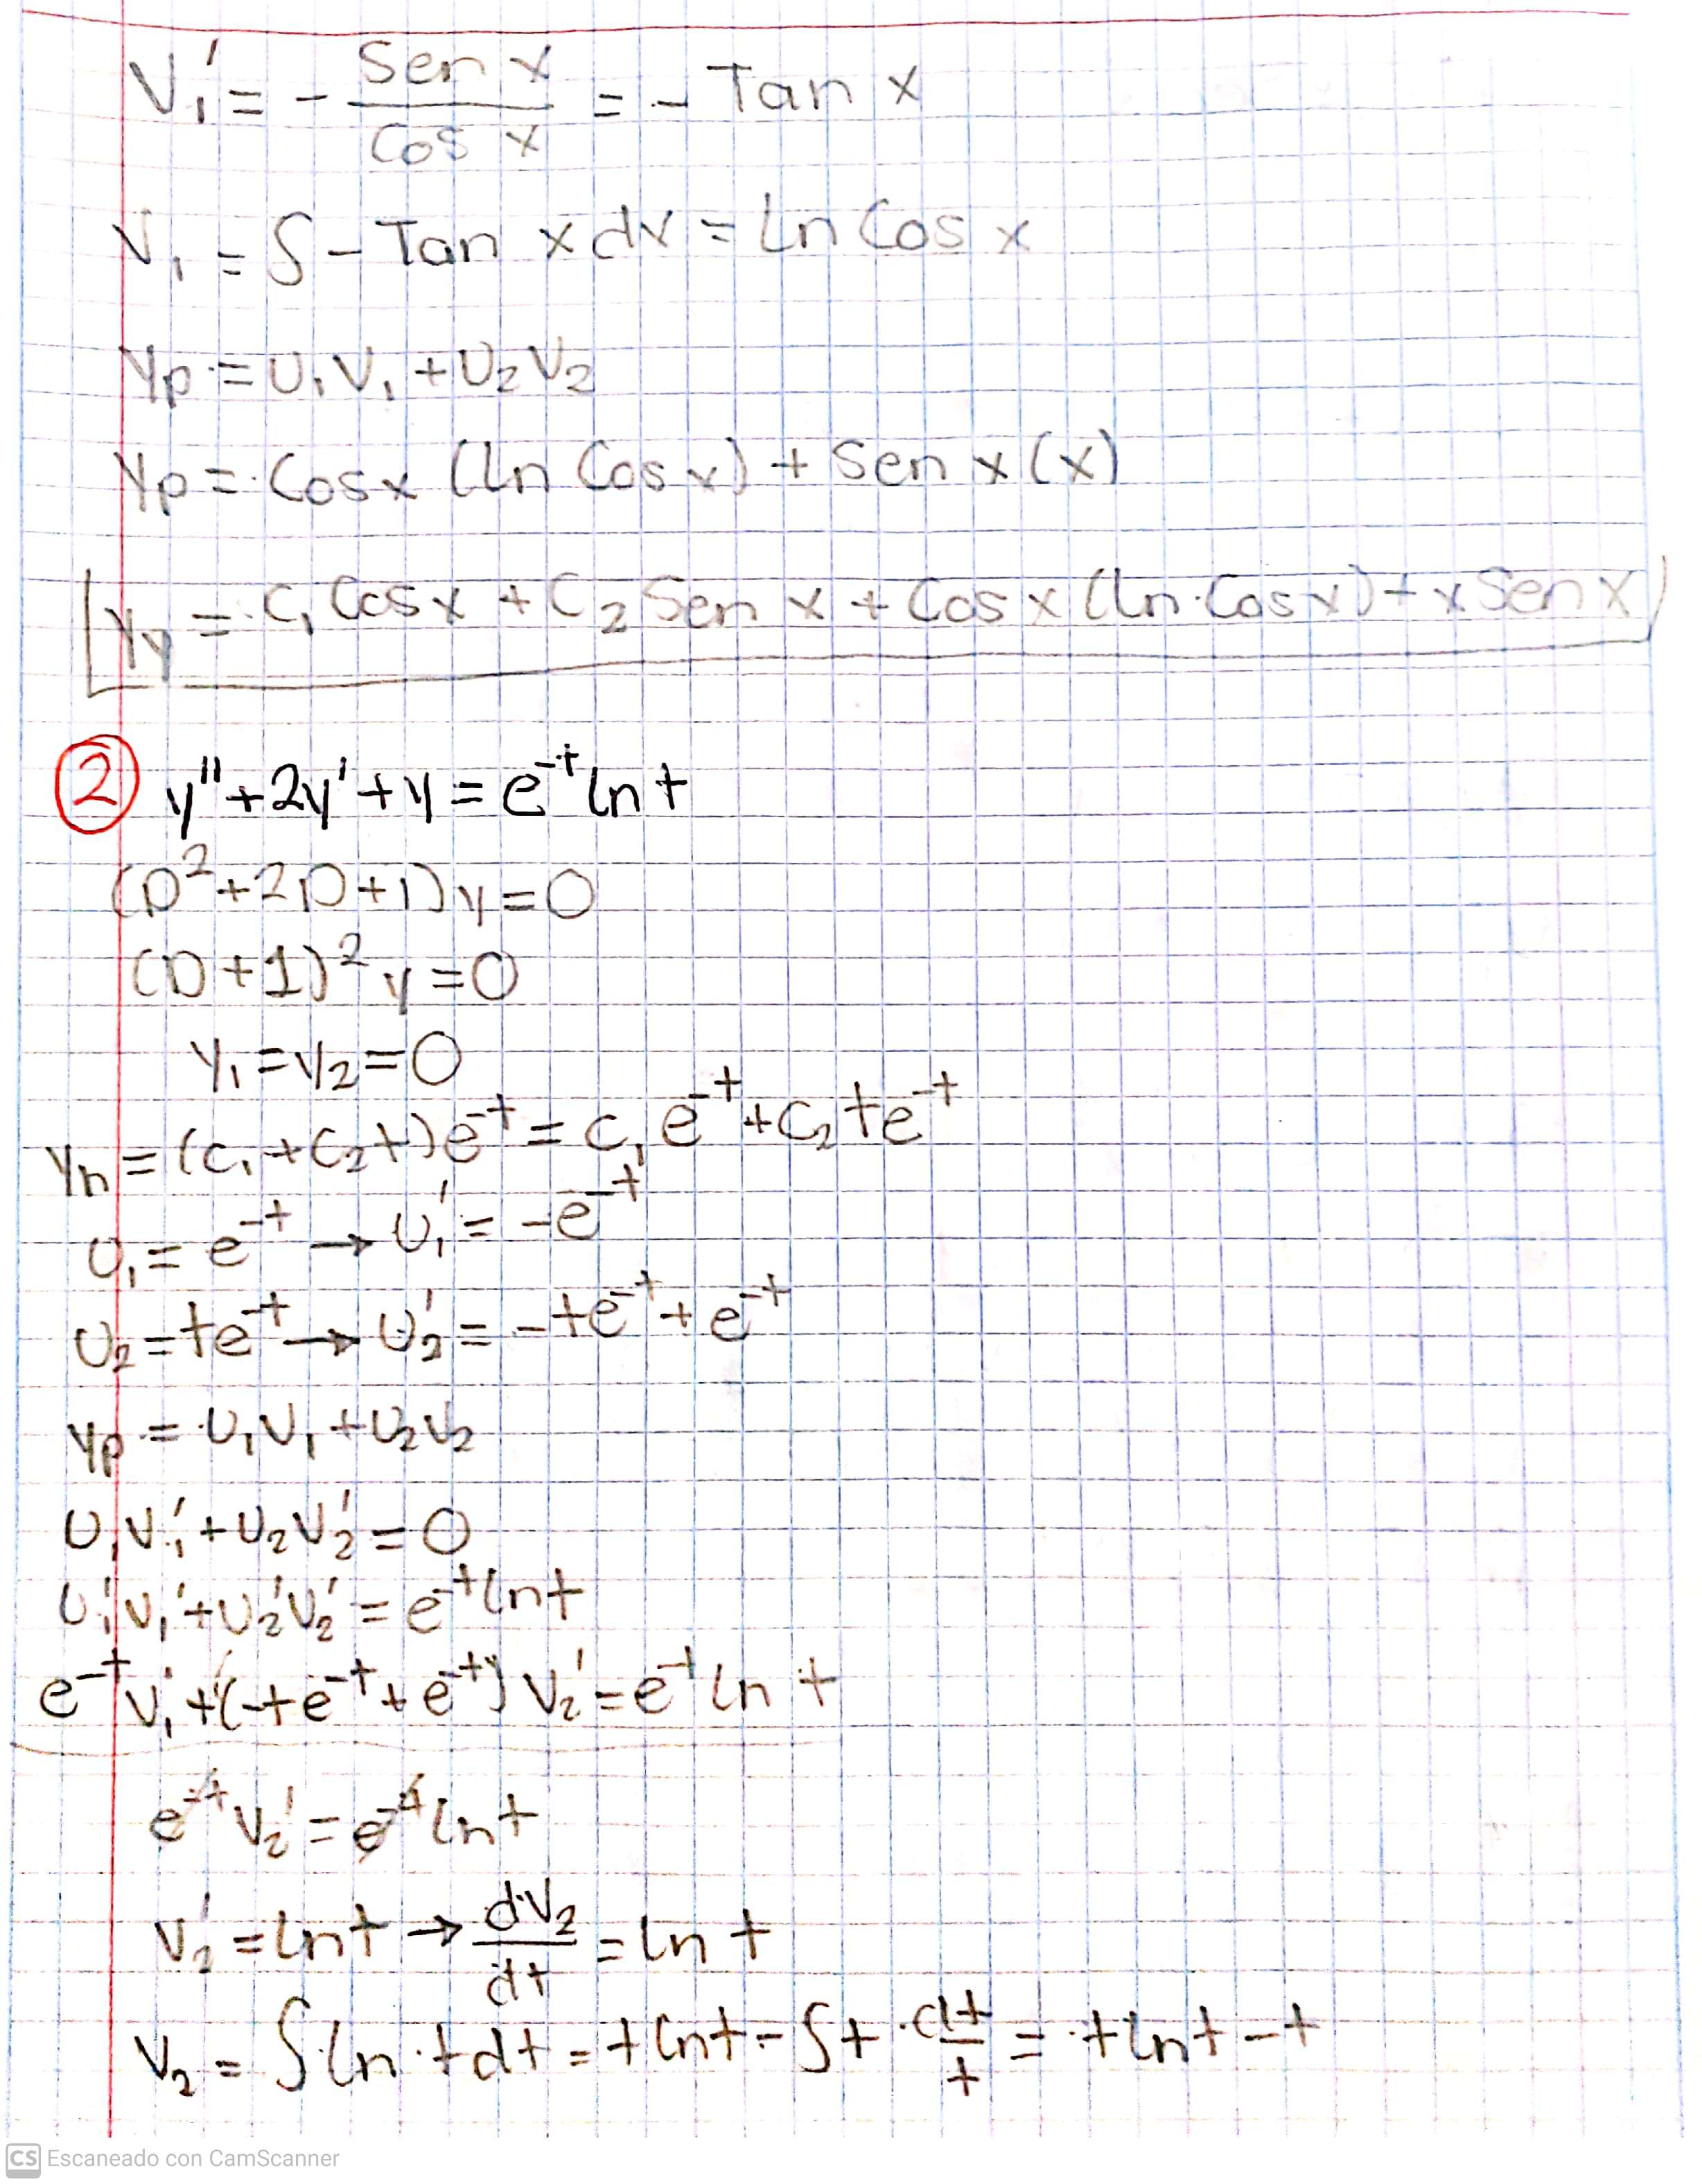 V₁' = - Sen x / Cos x = - Tan x
V₁ = ∫ - Tan x dx = Ln Cos x
Yp = U₁V₁ + U₂V₂
Yp = Cos x (ln Cos x) + Sen x (x)
Yy = C₁ Cos x + C₂ Sen x + Cos x (ln Cos x) + x Sen x
② y'' + 2y' + y = e⁻ᵗ ln t
(D² + 2D + 1) y = 0
(D + 1)² y = 0
Y₁ = Y₂ = 0
Yh = (C₁ + C₂t) e⁻ᵗ = C₁ e⁻ᵗ + C₂ t e⁻ᵗ
U₁ = e⁻ᵗ → U₁' = -e⁻ᵗ
U₂ = te⁻ᵗ → U₂' = -te⁻ᵗ + e⁻ᵗ
Yp = U₁V₁ + U₂V₂
U₁V₁' + U₂V₂' = 0
U₁'V₁' + U₂'V₂' = e⁻ᵗ ln t
e⁻ᵗ V₁' + (-te⁻ᵗ + e⁻ᵗ) V₂' = e⁻ᵗ ln t
e⁻ᵗ V₂' = e⁻ᵗ ln t
V₂' = ln t → dV₂ / dt = ln t
V₂ = ∫ ln t dt = t ln t - ∫ t · dt / t = t ln t - t
CS Escaneado con CamScanner